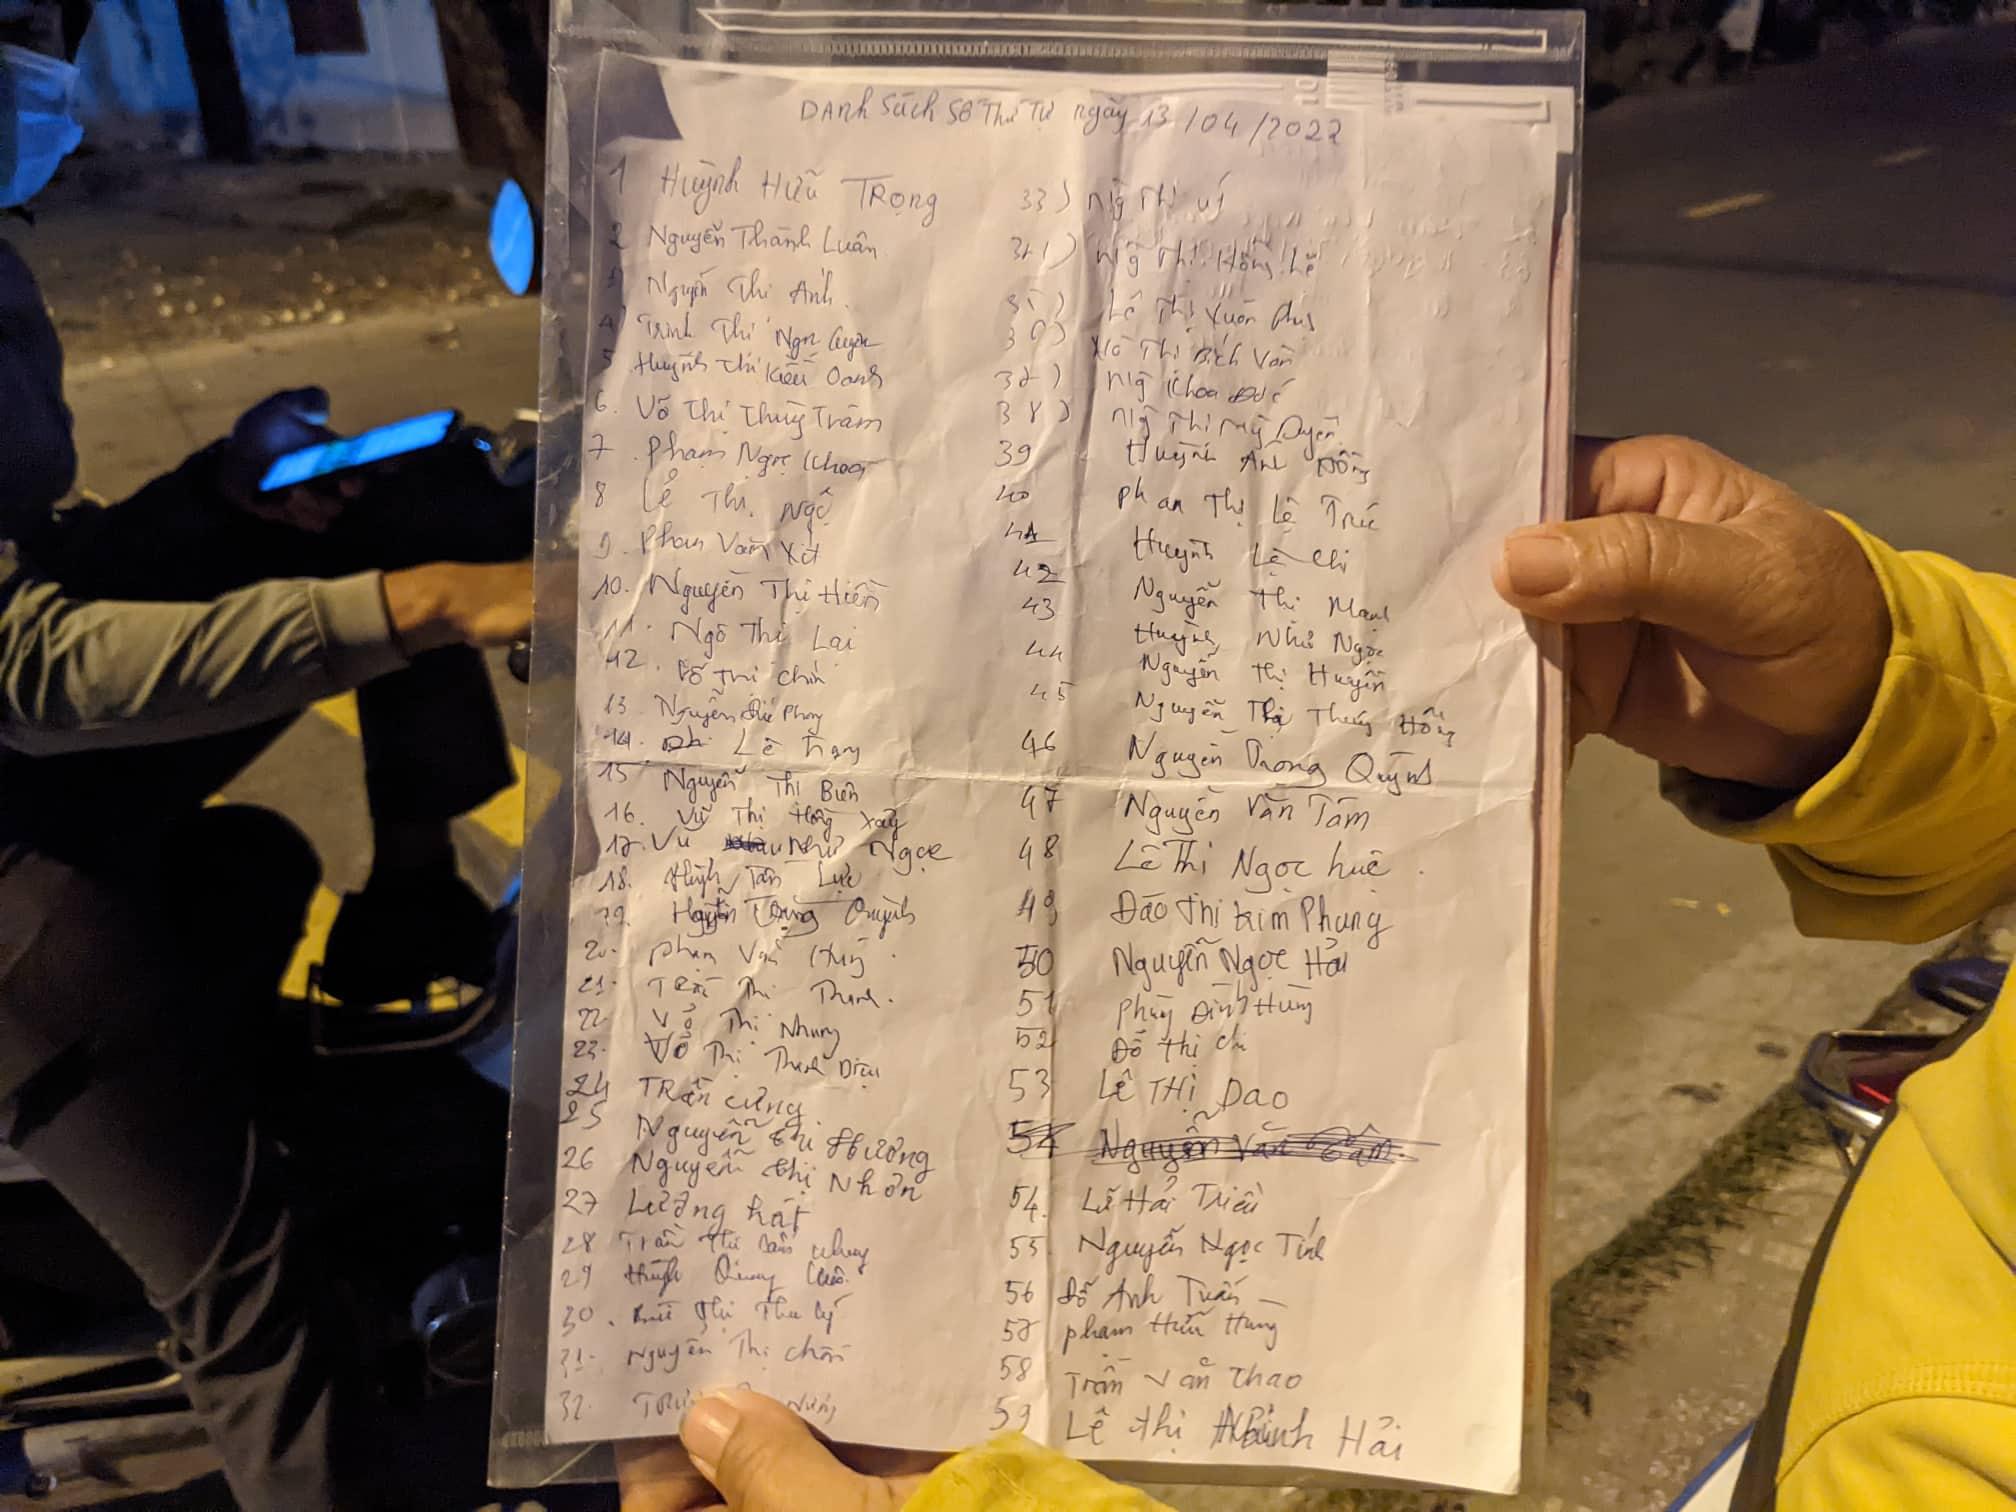 Danh Sách Số Thứ Tự ngày 13/04/2022
1 Huỳnh Hữu Trọng
2 Nguyễn Thành Luân
Nguyễn Thị Ánh.
4) Trịnh Thị Ngọc
5 Huỳnh Thị Kiều Oanh
6. Võ Thị Thùy Trâm
7. Phạm Ngọc Khoa
8 Lê Thị Ngộ
9. Phan Văn Xít
10. Nguyễn Thị Hiền
11. Ngô Thị Lại
12. Thị Chín
13. Nguyễn Phong
14. Lê
15 Nguyễn Thị Biên
16. Vũ Thị Hồng
17. Vũ Như Ngọc
18. Huỳnh Tấn Lực
19. Nguyễn Trọng Quỳnh
20. Phạm Văn
21. Thị
22 Võ Thị Nhung
23. Võ Thị Diệu
24 Trần Cứng
25 Nguyễn Thị Hường
26 Nguyễn Thị Nhơn
27 Lương
28 Trần Nhung
29 Huỳnh Quang
30. Thị Thu
31. Nguyễn Thị
32.
33) Ng̃ Thị Út
34) Ng̃ Thị Hồng Lê
35) Lê Thị Xuân
36) Thị Bích Vân
37) Ng̃ Khoa
38) Ng̃ Thị Mỹ Duyên
39 Huỳnh Ánh Hồng
40 Phan Thị Lệ Trúc
41 Huỳnh Lệ Chi
42 Nguyễn Thị
43 Huỳnh Như Ngọc
44 Nguyễn Thị Huyền
45 Nguyễn Thị Thúy Hồng
46 Nguyễn Trọng Quỳnh
47 Nguyễn Văn Tám
48 Lê Thị Ngọc Huệ.
49 Đào Thị Kim Phụng
50 Nguyễn Ngọc Hải
51 Phùng Đình Hùng
52 Đỗ Thị
53 Lê Thị Dao
54 Nguyễn Văn
54. Lữ Hải Triều
55. Nguyễn Ngọc Tính
56 Đỗ Anh Tuấn
57 Phạm Hữu Hùng
58 Trần Văn Thao
59 Lê Thị Hải